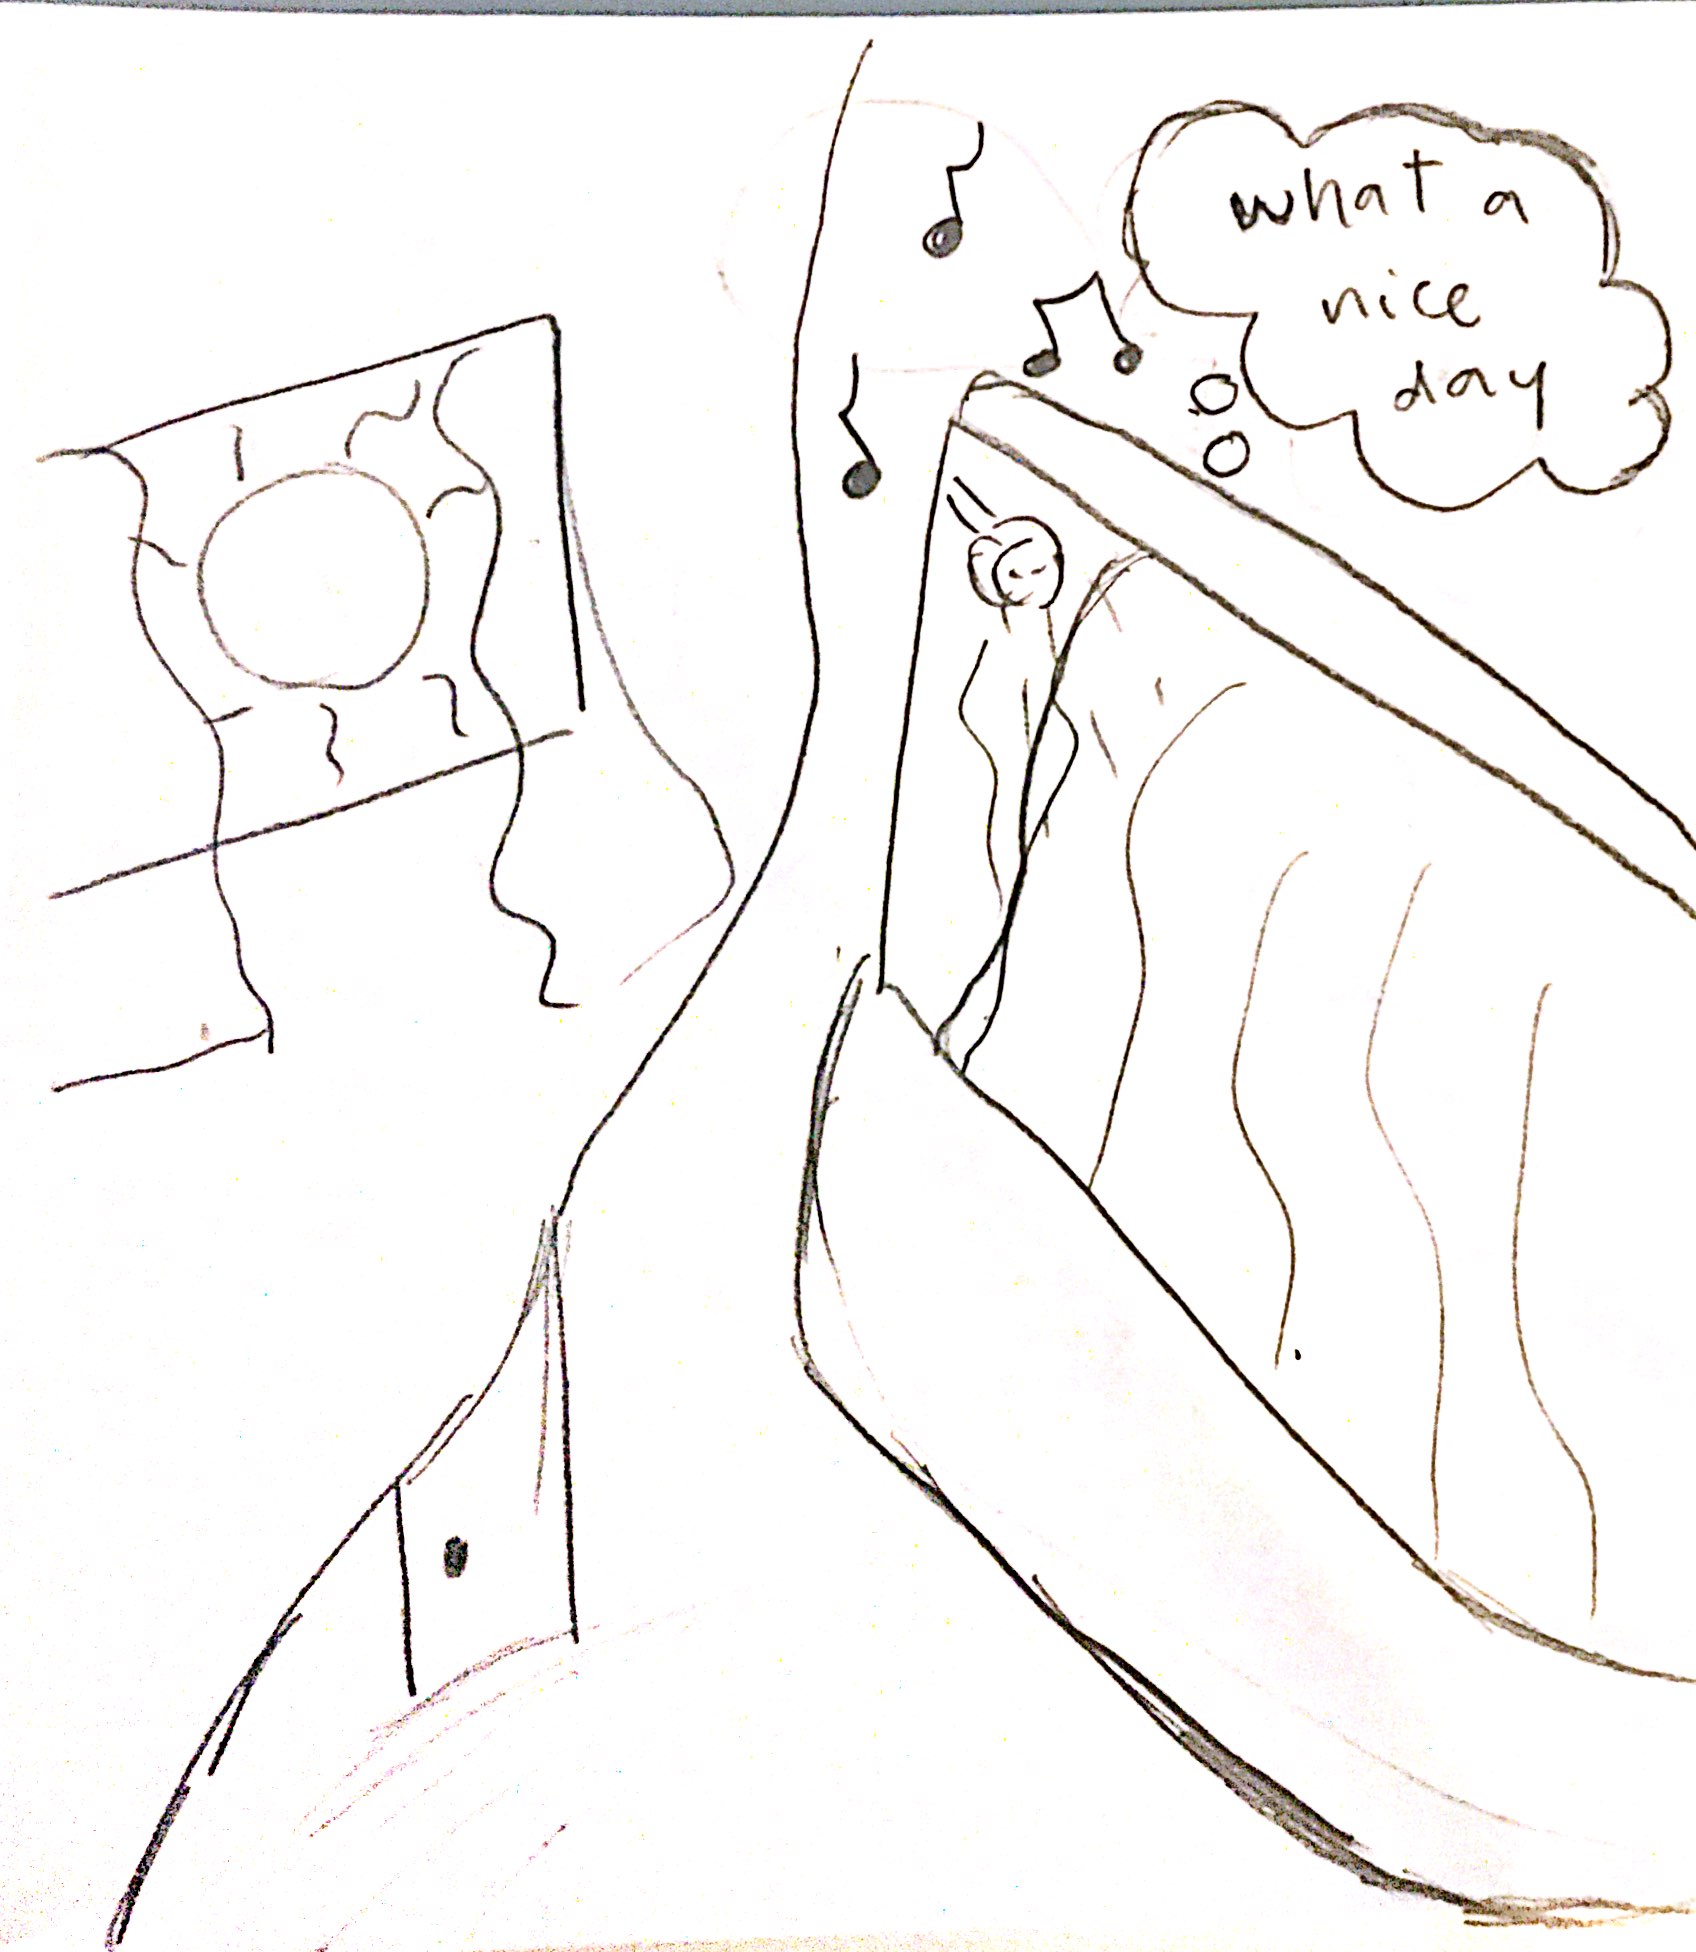 what a
nice
day